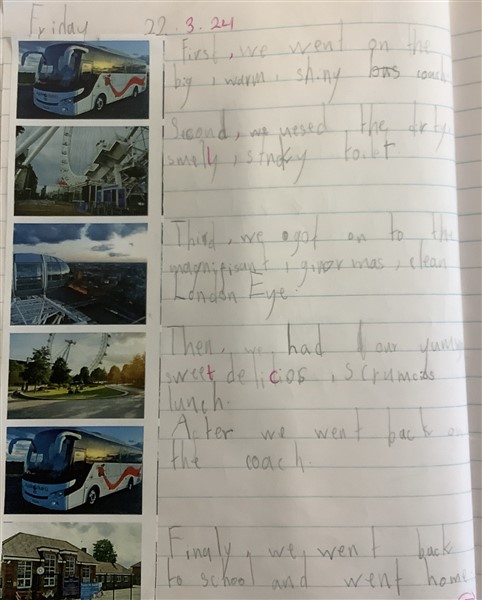 Friday 22.3.24
First, we went on the
big, warm, shiny bus coach
Second, we uesed the drty
smelly, stncky toilet
Third, we got on to the
magnifisant, ginormas, clean
London Eye.
Then, we had our yumy
sweet delicios, scrumcos
lunch.
After we went back on
the coach.
Finaly, we went back
to school and went home